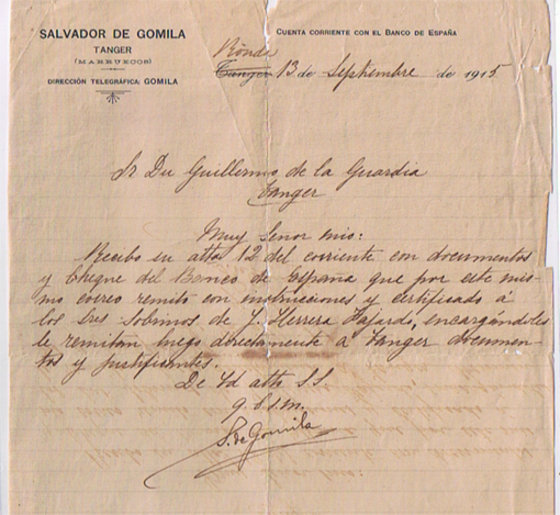 SALVADOR DE GOMILA
TANGER
(MARRUECOS)
DIRECCIÓN TELEGRÁFICA: GOMILA
CUENTA CORRIENTE CON EL BANCO DE ESPAÑA
Ronda
Tanger 13 de Septiembre de 1915
Sr Dn Guillermo de la Guardia
Tanger
Muy Señor mio:
Recibo su atta 12 del corriente con documentos
y Cheque del Banco de España que por este mis-
mo correo remito con instrucciones y certificado á
los Sres Sobrinos de J. Herrera Fajardo, encargándoles
le remitan luego directamente a Tanger documen-
tos y justificantes.
De Vd atto S.S.
q.b.s.m.
S. de Gomila